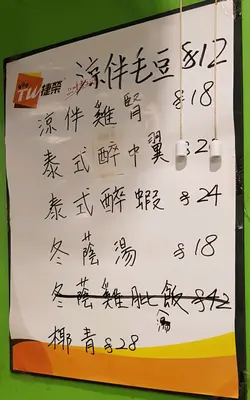 TW捷榮
涼伴毛豆 $12
涼伴雞腎 $18
泰式醉中翼 $2
泰式醉蝦 $24
冬蔭湯 $18
冬蔭雞肶飯 $42
湯
椰青 $28